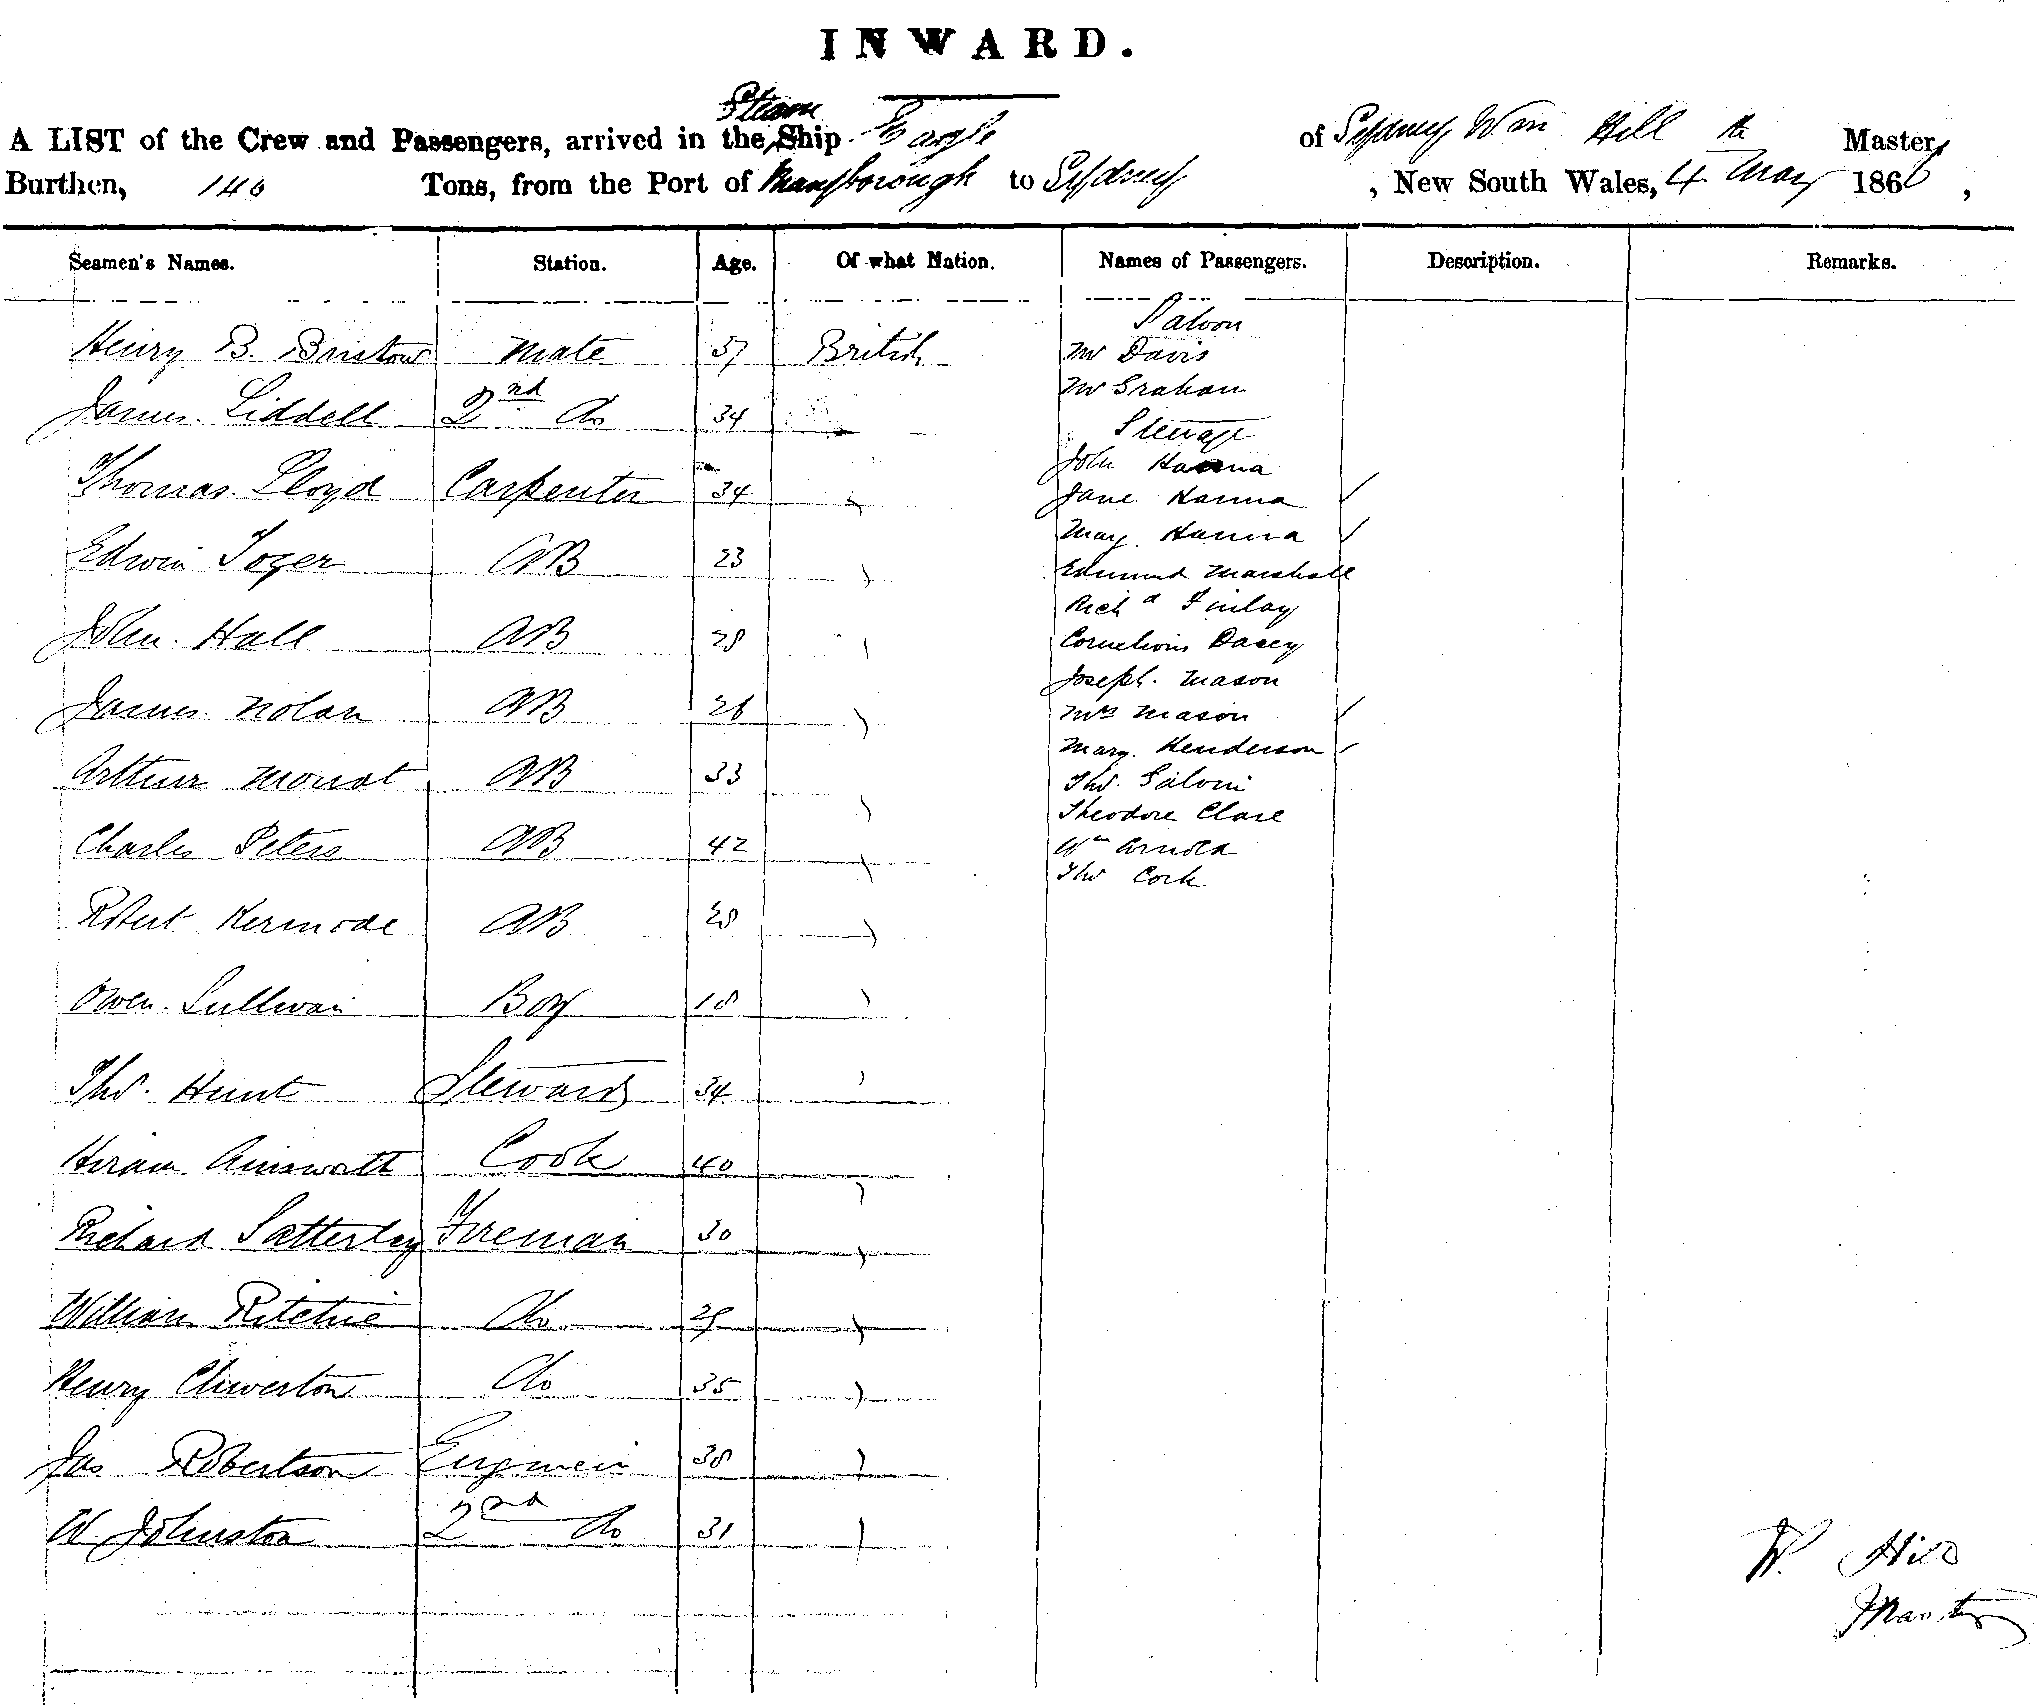 INWARD.
Steam
A LIST of the Crew and Passengers, arrived in the Ship Eagle of Sydney Wm Hill Master,
Burthen, 140 Tons, from the Port of Maryborough to Sydney, New South Wales, 4 May 1866,
Seamen's Names. Station. Age. Of what Nation. Names of Passengers. Description. Remarks.
Saloon
Henry B. Bristow Mate 37 British Mr Davis
Mr Graham
James Liddell 2nd Do 34
Steerage
John Hanna
Thomas Lloyd Carpenter 34 Jane Hanna
Mary Hanna
Edwin Tozer AB 23 Edmund Marshall
Richd Finlay
John Hall AB 28 Cornelious Dacey
Joseph Mason
James Nolan AB 26 Mrs Mason
Mary Henderson
Arthur Mouat AB 33 Thos
Theodore Clare
Charles Peters AB 42 Wm Arnold
Thos Cork
Robert Kermode AB 28
Owen Sullivan Boy 18
Thos. Hunt Steward 34
Hiram Ainsworth Cook 40
Richard Satterley Fireman 30
William Ritchie Do
Henry Chiverton Do 35
Jas Robertson Engineer 38
W Johnston 2nd Do 31
W. Hill
Master